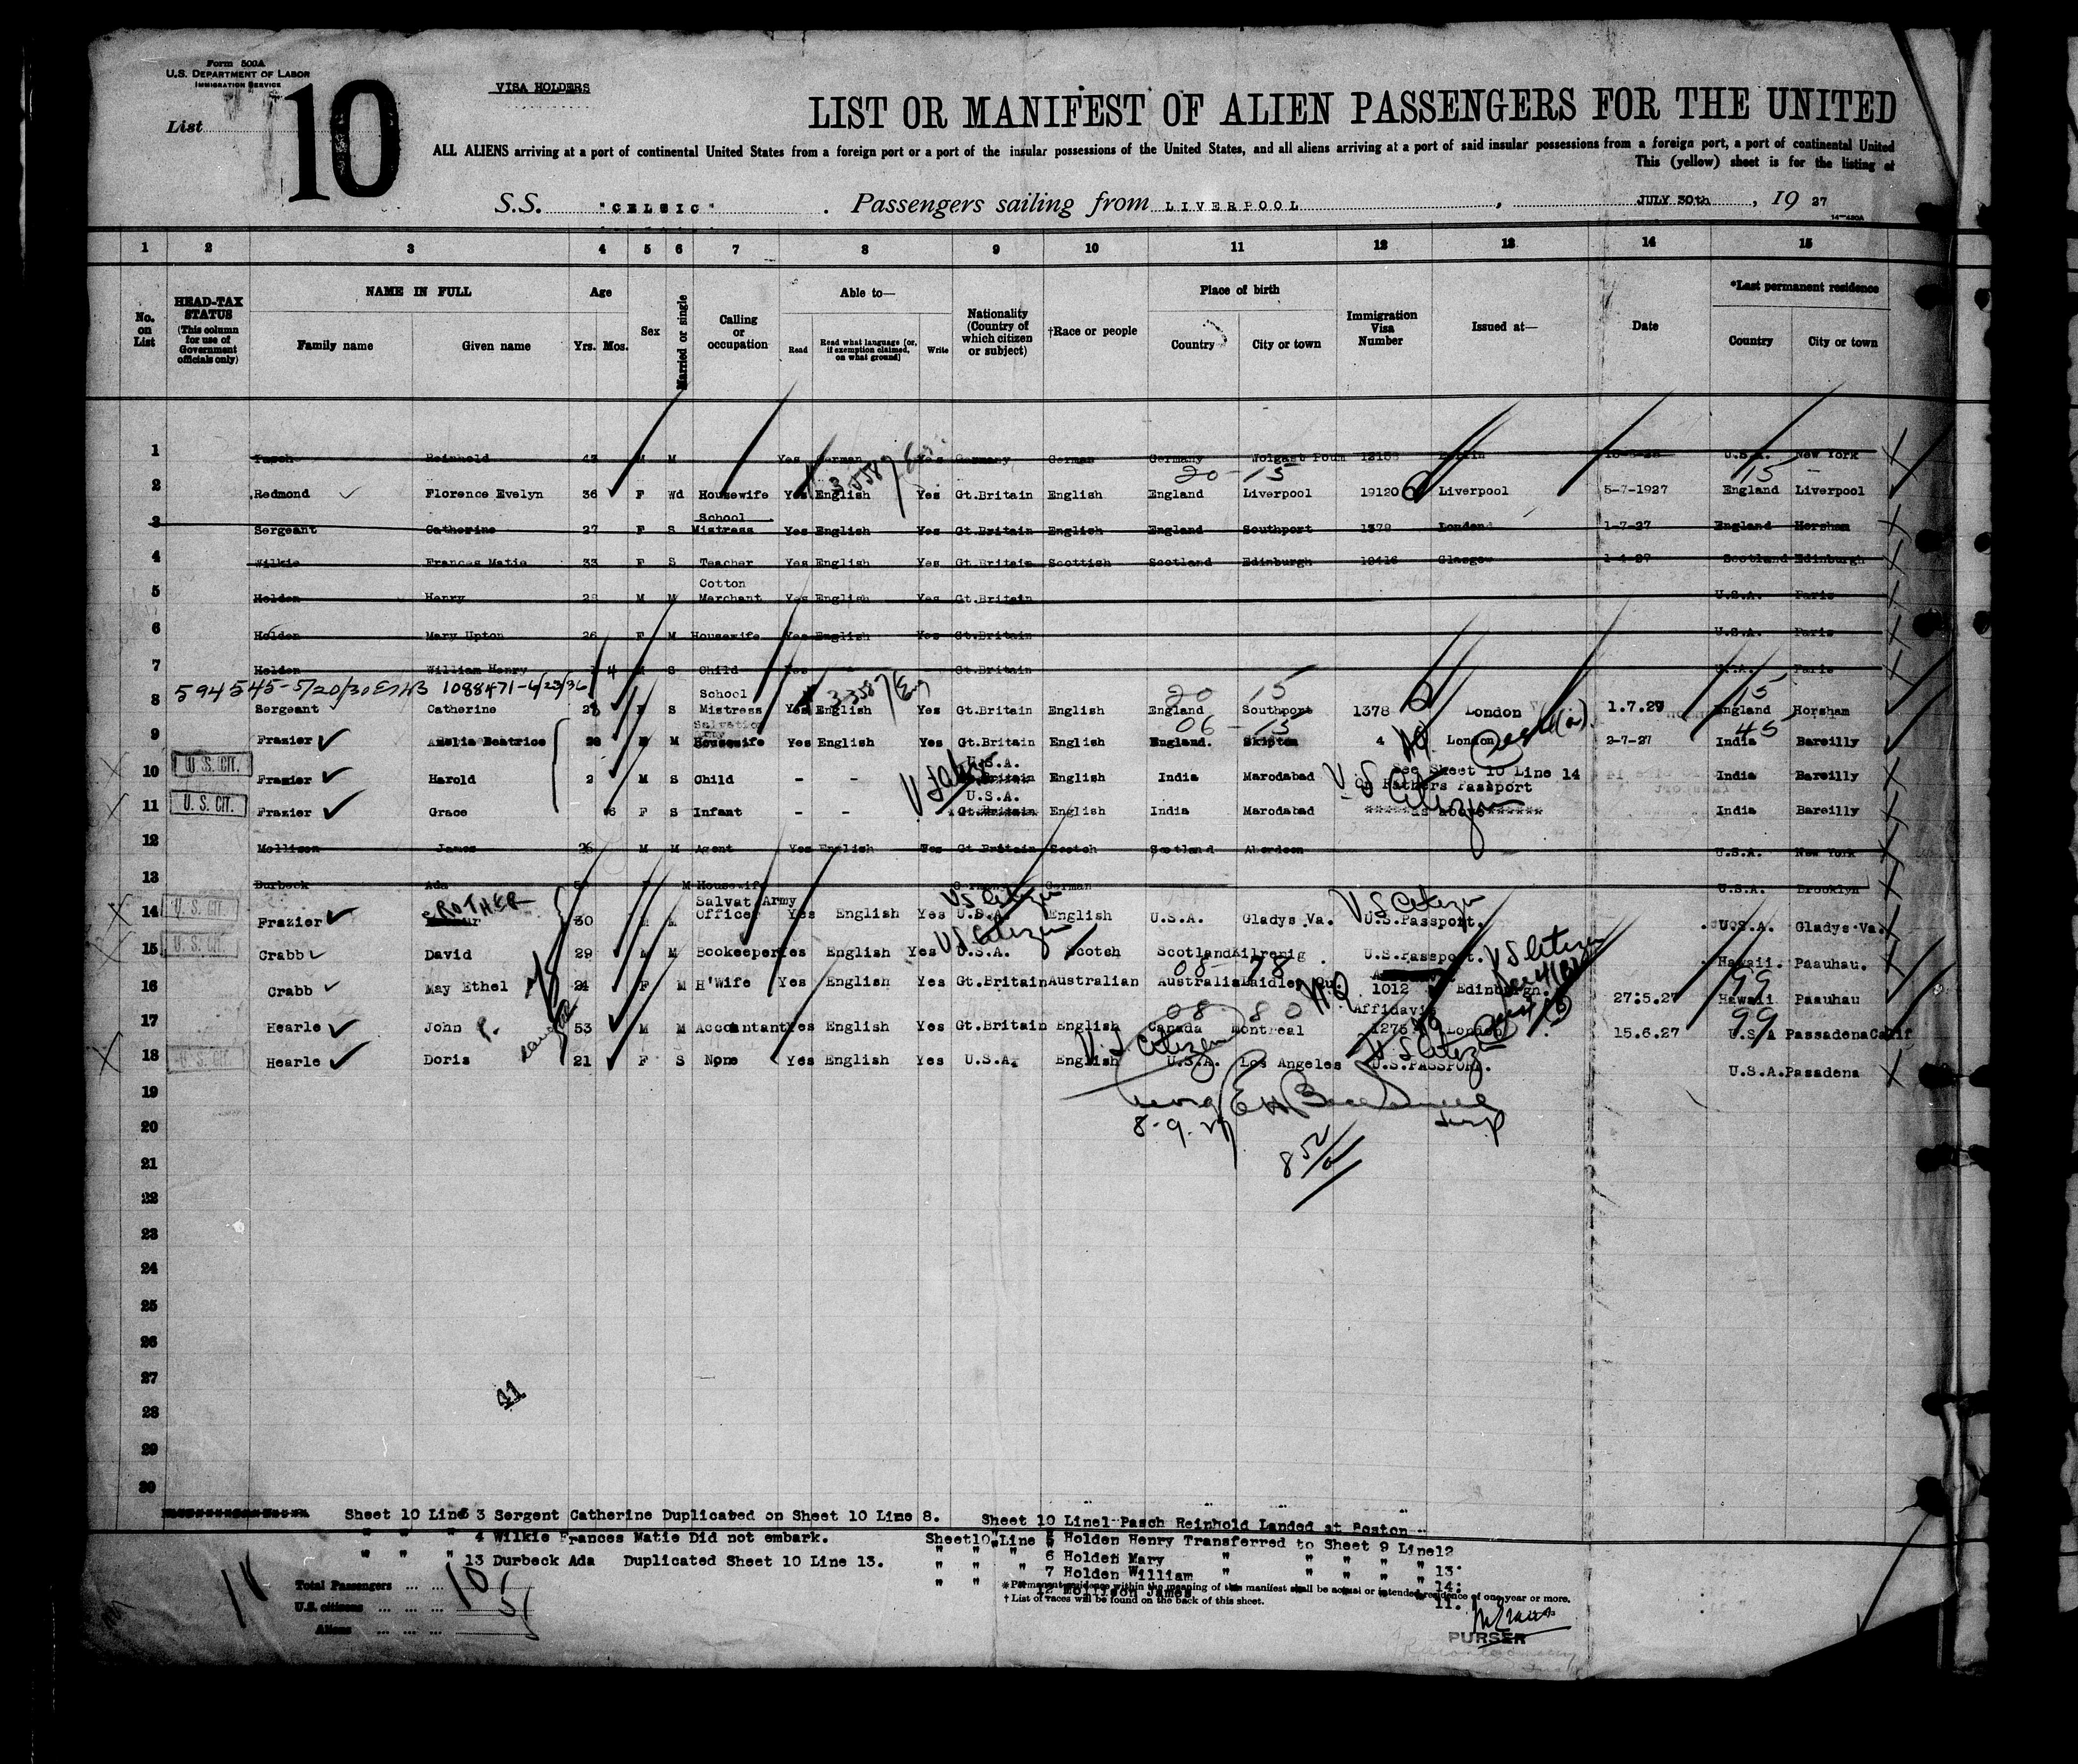 Form 500A
U.S. DEPARTMENT OF LABOR
IMMIGRATION SERVICE
List 10
VISA HOLDERS
LIST OR MANIFEST OF ALIEN PASSENGERS FOR THE UNITED
ALL ALIENS arriving at a port of continental United States from a foreign port or a port of the insular possessions of the United States, and all aliens arriving at a port of said insular possessions from a foreign port, a port of continental United
This (yellow) sheet is for the listing of
S.S. "CELSIC" . Passengers sailing from LIVERPOOL , JULY 30th , 19 27
14-480A
1 2 3 4 5 6 7 8 9 10 11 12 13 14 15
No. on List
HEAD-TAX STATUS (This column for use of Government officials only)
NAME IN FULL Family name Given name
Age Yrs. Mos.
Sex
Married or single
Calling or occupation
Able to— Read Read what language [or, if exemption claimed, on what ground] Write
Nationality (Country of which citizen or subject)
†Race or people
Place of birth Country City or town
Immigration Visa Number
Issued at—
Date
*Last permanent residence Country City or town
1 Pasch Reinhold 43 M M Yes German Yes Germany German Germany Wolgast U.S.A. New York
20 - 15 15 -
2 Redmond Florence Evelyn 36 F Wd Housewife Yes English Yes Gt.Britain English England Liverpool 19120 Liverpool 5-7-1927 England Liverpool
3 Sergeant Catherine 27 F S School Mistress Yes English Yes Gt.Britain English England Southport 1379 London 1-7-27 England Horsham
4 Wilkie Frances Matie 33 F S Teacher Yes English Yes Gt.Britain Scottish Scotland Edinburgh 19416 Glasgow 1-4-27 Scotland Edinburgh
5 Holden Henry 28 M M Cotton Merchant Yes English Yes Gt.Britain U.S.A. Paris
6 Holden Mary Upton 26 F M Housewife Yes English Yes Gt.Britain U.S.A. Paris
7 Holden William Henry 4 M S Child Yes - Gt.Britain U.S.A. Paris
594545-5/20/30 1088471-6/23/36
20 15 15
8 Sergeant Catherine 27 F S School Mistress Yes English Yes Gt.Britain English England Southport 1378 London 1.7.27 England Horsham
06 - 15 45
9 Frazier Amelia Beatrice 28 M Salvation Housewife Yes English Yes Gt.Britain English England. Skipton 4 London 2-7-27 India Bareilly
10 U. S. CIT. Frazier Harold 2 M S Child - - U.S.A. Gt.Britain English India Marodabad See Sheet 10 Line 14 India Bareilly
On Fathers Passport
11 U. S. CIT. Frazier Grace 6 F S Infant - - U.S.A. Gt.Britain English India Marodabad ******as above****** India Bareilly
US Citizen
12 Mollison James 26 M M Agent Yes English Yes Gt Britain Scotch Scotland Aberdeen U.S.A. New York
13 Durbeck Ada M Housewife Germany German U.S.A. Brooklyn
14 U. S. CIT. Frazier BROTHER 30 M M Salvat.Army Officer Yes English Yes U.S.A. English U.S.A. Gladys Va. U.S.Passport. U.S.A. Gladys Va.
US Citizen US Citizen
15 U. S. CIT. Crabb David 29 M M Bookeeper Yes English Yes U.S.A. Scotch Scotland Kilrenig U.S.Passport. Hawaii. Paauhau.
US Citizen US Citizen
08 - 78 99
16 Crabb May Ethel 24 F M H'Wife Yes English Yes Gt.Britain Australian Australia Laidley Qu. 1012 Edinburgh. 27.5.27 Hawaii Paauhau
Affidavit
08 80 99
17 Hearle John P. 53 M M Accountant Yes English Yes Gt.Britain English Canada Montreal 1275 London 15.6.27 U.S.A Passadena Calif
18 U. S. CIT. Hearle Doris 21 F S None Yes English Yes U.S.A. English U.S.A. Los Angeles U.S.PASSPORT. U.S.A. Pasadena
US Citizen US Citizen
19
20 8-9-27
21
22
23
24
25
26
27
41
28
29
30
Sheet 10 Line 3 Sergent Catherine Duplicated on Sheet 10 Line 8. Sheet 10 Line1 Pasch Reinhold Landed at Boston
" " " 4 Wilkie Frances Matie Did not embark. Sheet10 Line 5 Holden Henry Transferred to Sheet 9 Line12
" " " 13 Durbeck Ada Duplicated Sheet 10 Line 13. " " " 6 Holden Mary " " " " 13.
" " " 7 Holden William " " " " 14.
" " 12 Mollison James " " " " 11.
Total Passengers ... ... 10
U.S. citizens ... ... ... 5
Aliens ... ... ...
*Permanent residence within the meaning of this manifest shall be actual or intended residence of one year or more.
† List of races will be found on the back of this sheet.
PURSER